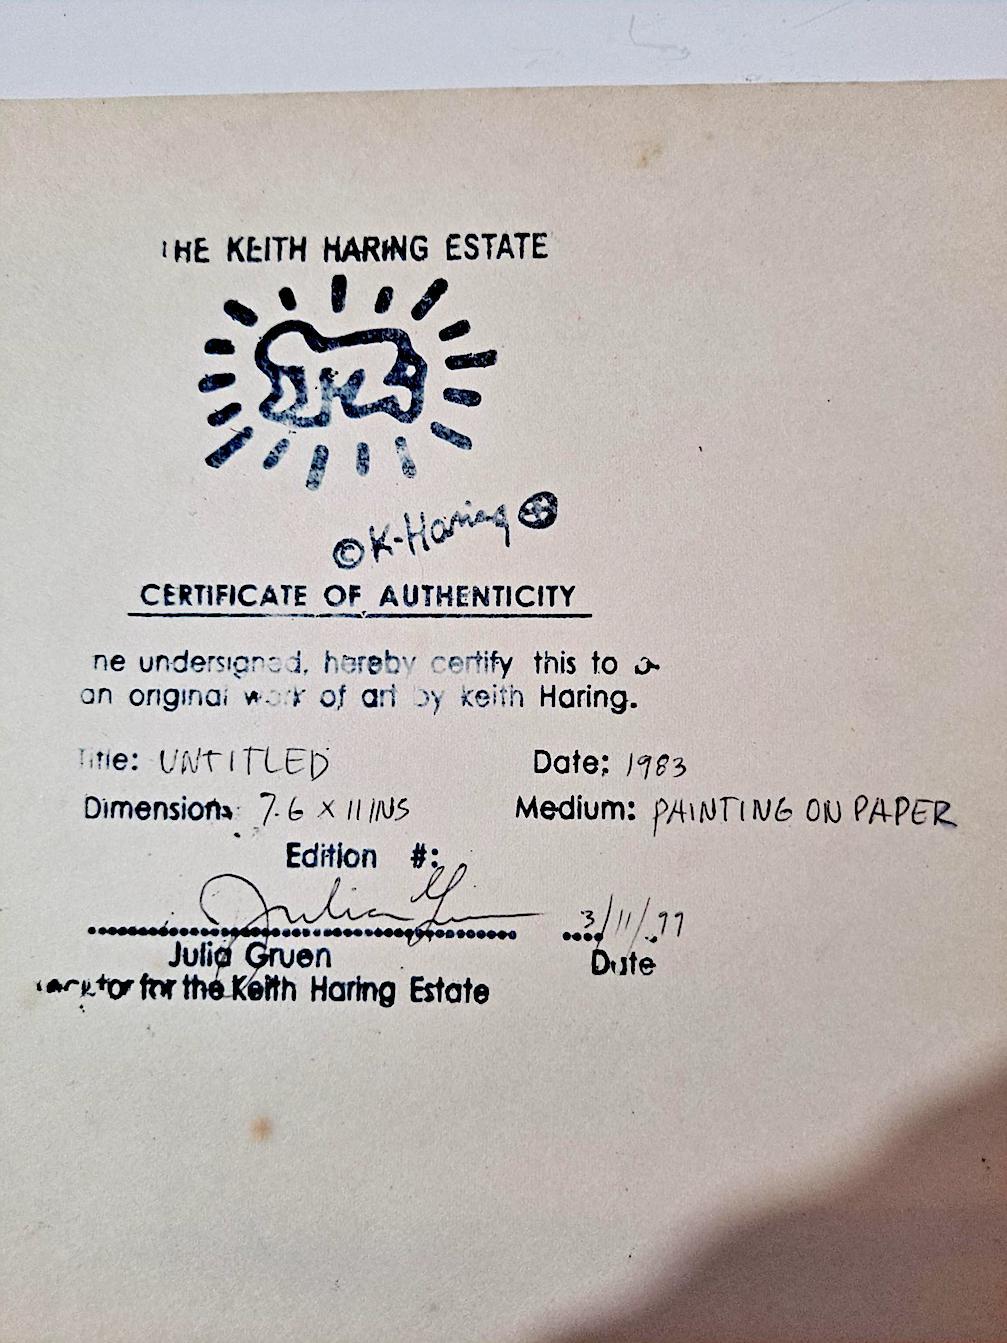 THE KEITH HARING ESTATE
© K-Haring
CERTIFICATE OF AUTHENTICITY
ne undersigned, hereby certify this to
an original work of art by keith Haring.
Title: UNTITLED Date: 1983
Dimension: 7.6 X 11 INS Medium: PAINTING ON PAPER
Edition #:
Julia Gruen 3/11/97
Julia Gruen Date
for the Keith Haring Estate